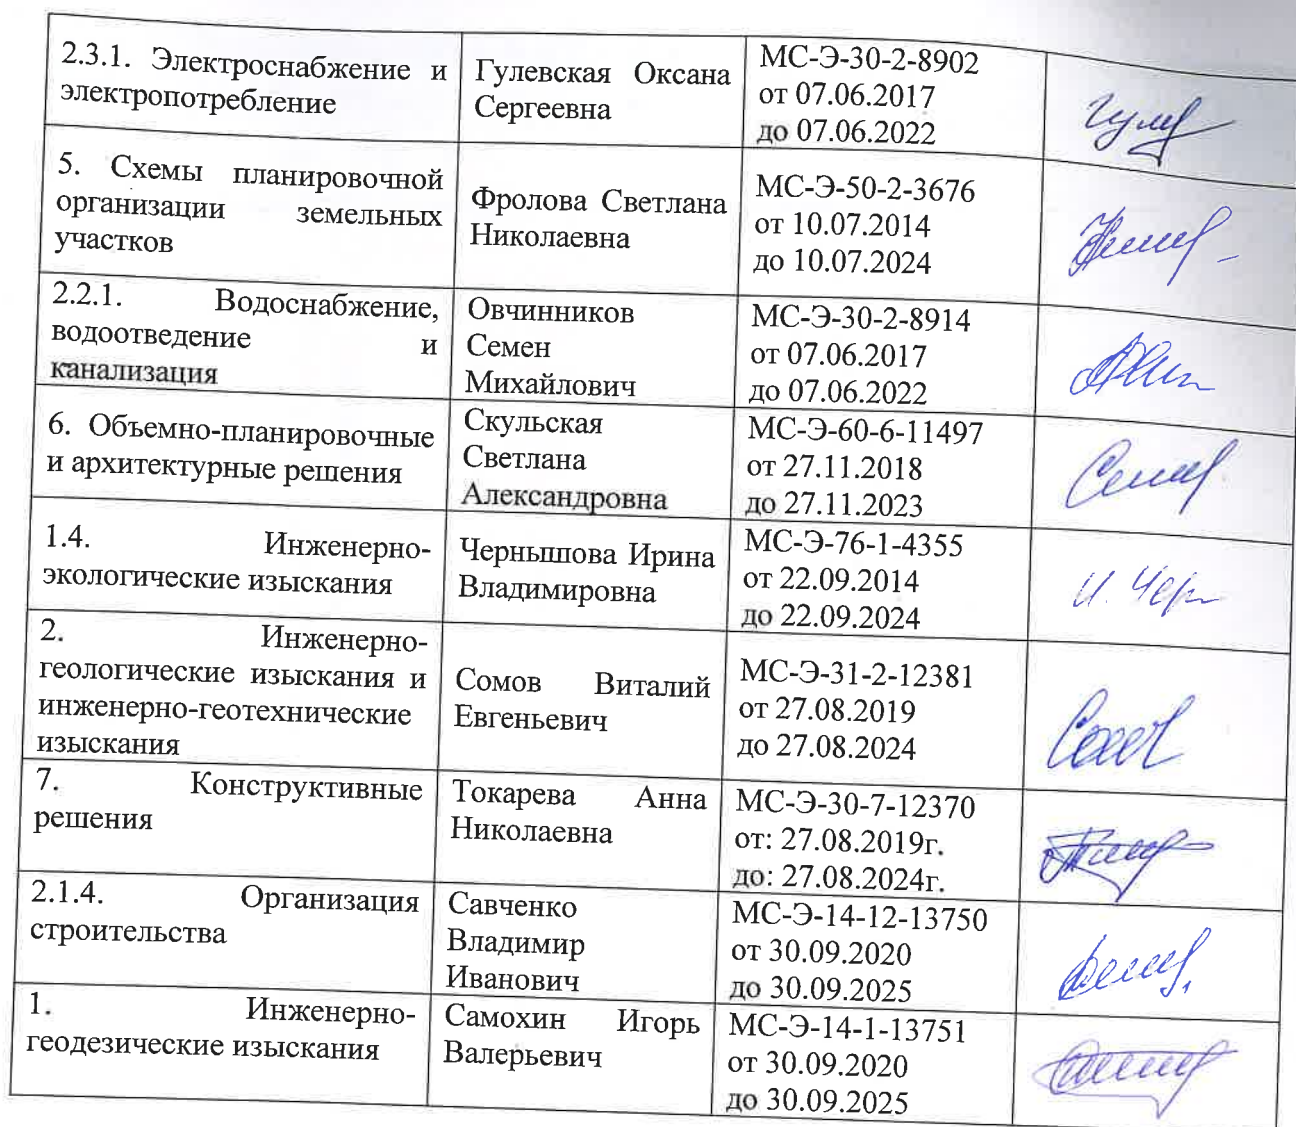 2.3.1. Электроснабжение и
электропотребление
Гулевская Оксана
Сергеевна
МС-Э-30-2-8902
от 07.06.2017
до 07.06.2022
5. Схемы планировочной
организации земельных
участков
Фролова Светлана
Николаевна
МС-Э-50-2-3676
от 10.07.2014
до 10.07.2024
2.2.1. Водоснабжение,
водоотведение и
канализация
Овчинников
Семен
Михайлович
МС-Э-30-2-8914
от 07.06.2017
до 07.06.2022
6. Объемно-планировочные
и архитектурные решения
Скульская
Светлана
Александровна
МС-Э-60-6-11497
от 27.11.2018
до 27.11.2023
1.4. Инженерно-
экологические изыскания
Чернышова Ирина
Владимировна
МС-Э-76-1-4355
от 22.09.2014
до 22.09.2024
И. Чер
2. Инженерно-
геологические изыскания и
инженерно-геотехнические
изыскания
Сомов Виталий
Евгеньевич
МС-Э-31-2-12381
от 27.08.2019
до 27.08.2024
7. Конструктивные
решения
Токарева Анна
Николаевна
МС-Э-30-7-12370
от: 27.08.2019г.
до: 27.08.2024г.
2.1.4. Организация
строительства
Савченко
Владимир
Иванович
МС-Э-14-12-13750
от 30.09.2020
до 30.09.2025
1. Инженерно-
геодезические изыскания
Самохин Игорь
Валерьевич
МС-Э-14-1-13751
от 30.09.2020
до 30.09.2025